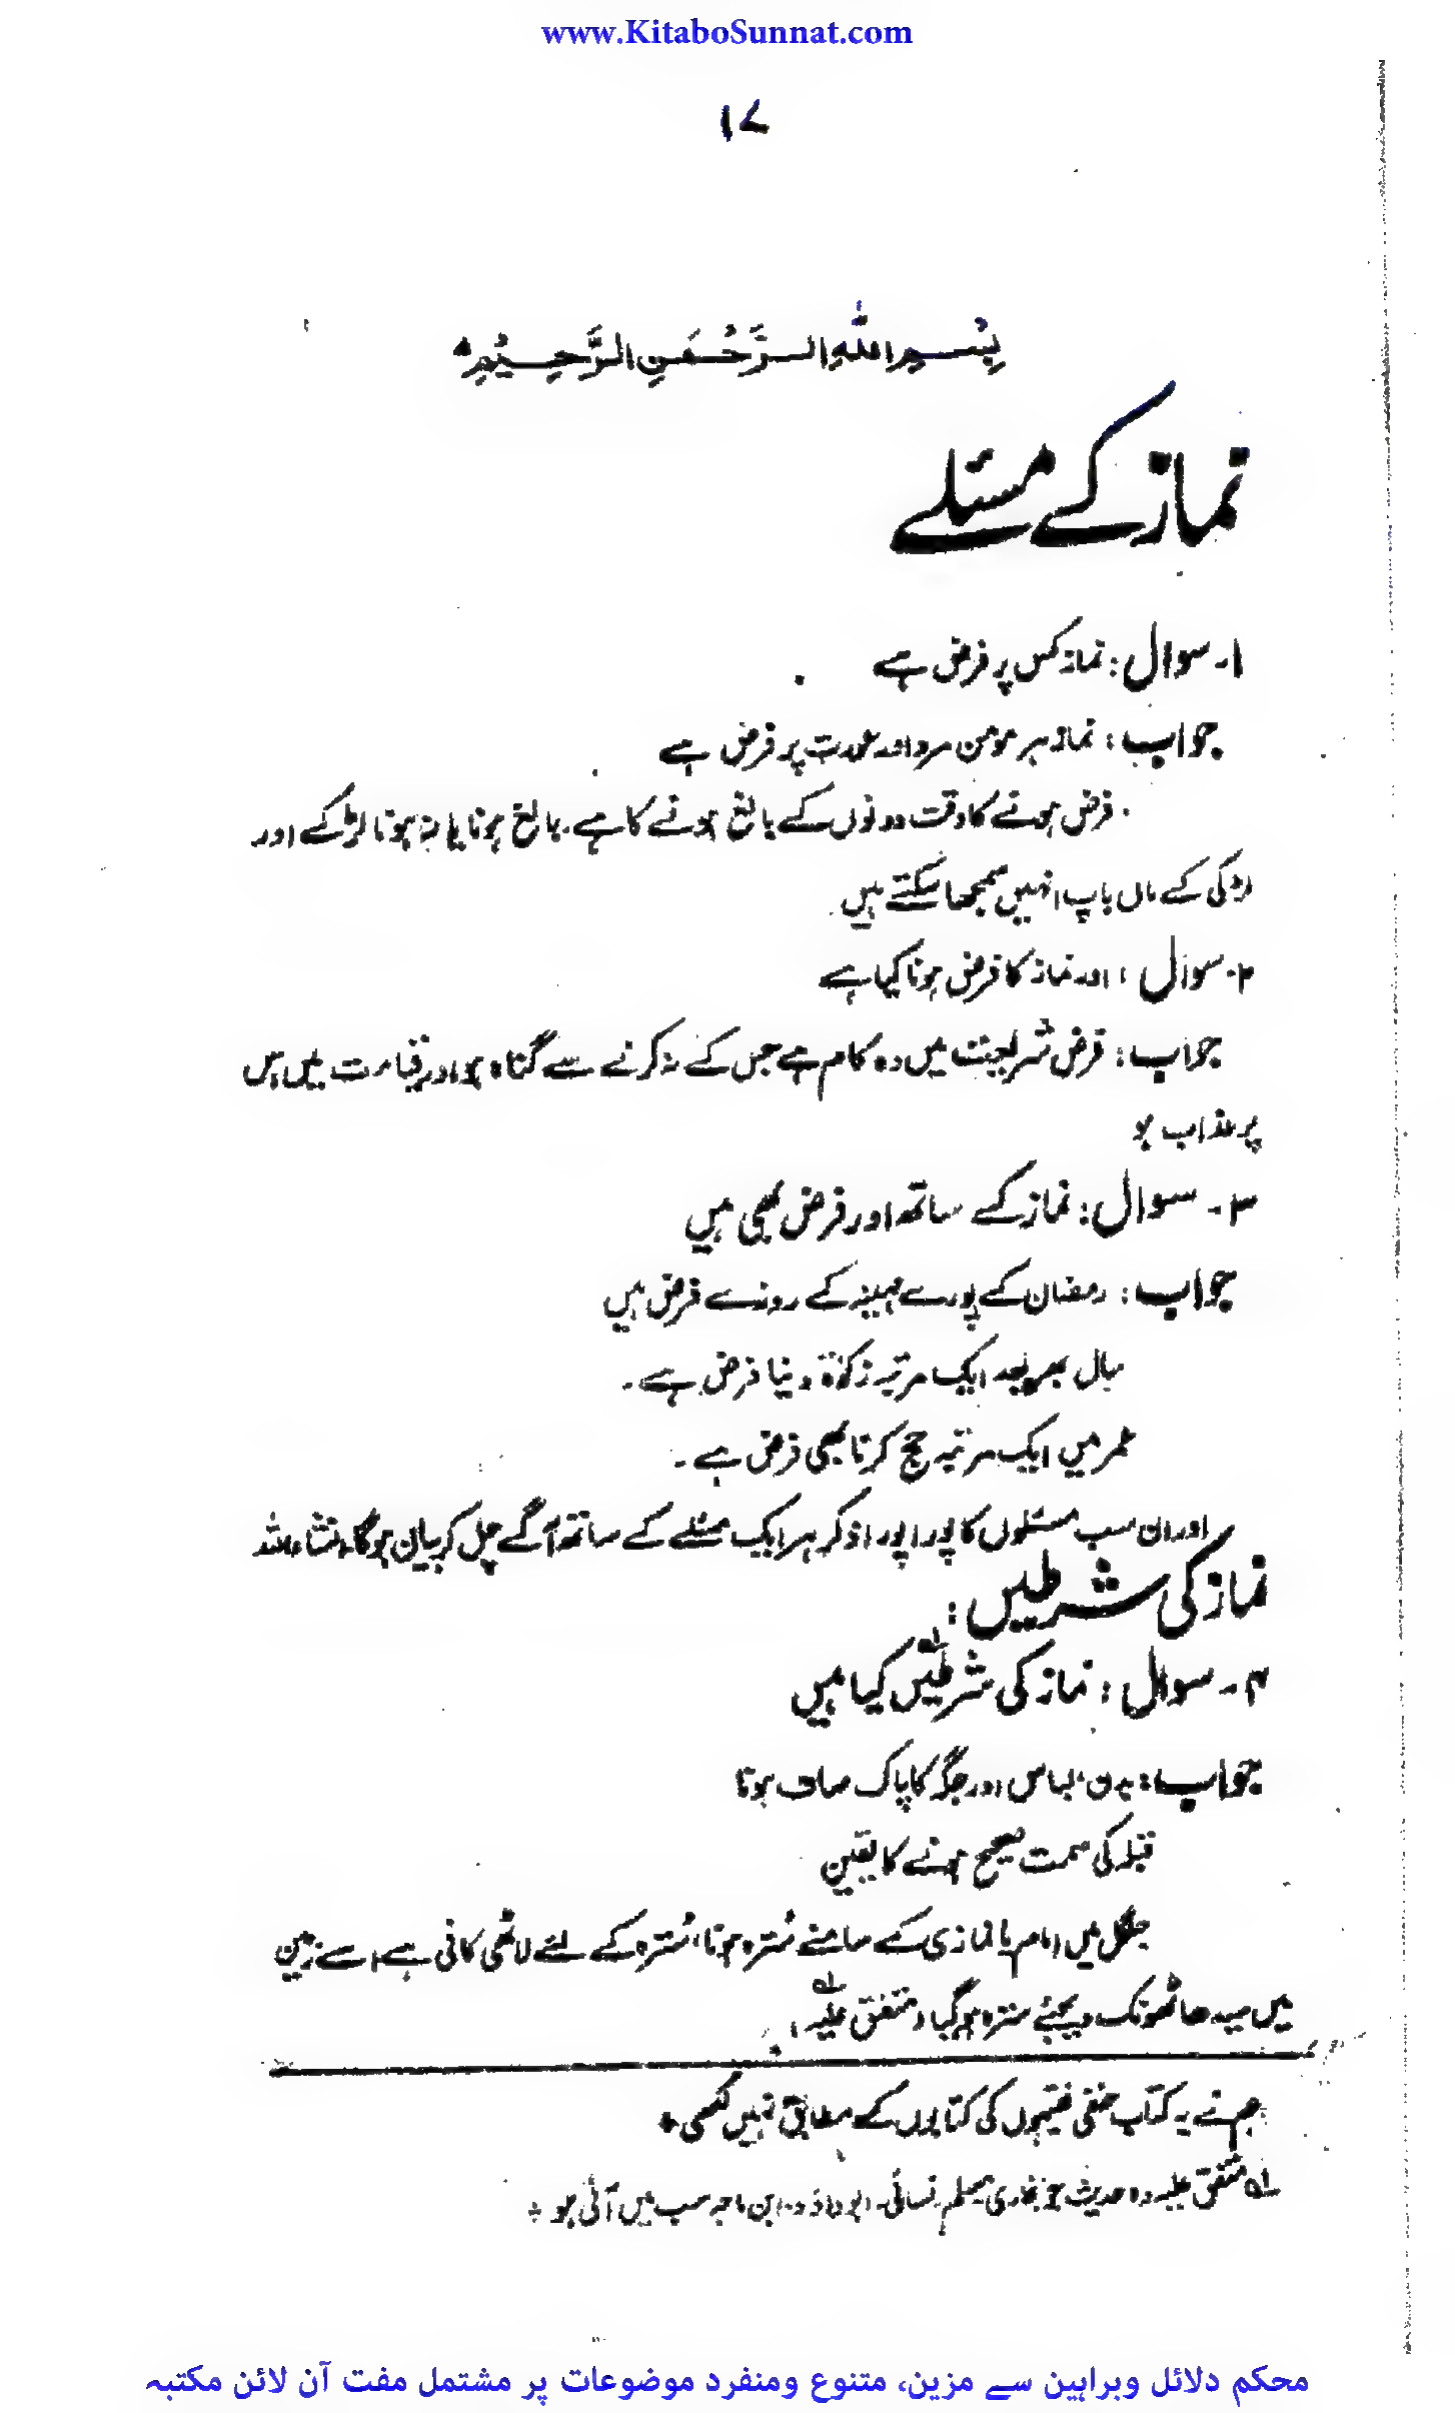 www.KitaboSunnat.com
۱۷
بِسْمِ اللهِ الرَّحْمَنِ الرَّحِيْمِ
نماز کے مسئلے
۱۔ سوال: نماز کس پر فرض ہے
جواب: نماز ہر مومن مرد اور عورت پر فرض ہے
فرض ہونے کا وقت دونوں کے بالغ ہونے کا ہے۔ بالغ ہونا یا نہ ہونا لڑکے اور
لڑکی کے ماں باپ انہیں سمجھا سکتے ہیں
۲۔ سوال: اور نماز کا فرض ہونا کیا ہے
جواب: فرض شریعت میں وہ کام ہے جس کے نہ کرنے سے گناہ ہو اور قیامت میں اس
پر عذاب ہو
۳۔ سوال: نماز کے ساتھ اور فرض بھی ہیں
جواب: رمضان کے پورے مہینہ کے روزے فرض ہیں
سال بھر بعد ایک مرتبہ زکوٰۃ دینا فرض ہے۔
عمر میں ایک مرتبہ حج کرنا بھی فرض ہے۔
اور ان سب مسئلوں کا پورا پورا ذکر ہر ایک مسئلے کے ساتھ آگے چل کر بیان ہوگا انشاءاللہ
نماز کی شرطیں:
۴۔ سوال: نماز کی شرطیں کیا ہیں
جواب: بدن، لباس اور جگہ کا پاک صاف ہونا
قبلہ کی سمت صحیح ہونے کا یقین
جنگل میں امام یا نمازی کے سامنے سُترہ ہونا، سُترہ کے لئے لاٹھی کافی ہے، اسے زمین
میں سیدھا ٹھونک دیجئے سترہ ہو گیا (متفق علیہ)
ہم نے یہ کتاب حنفی فقیہوں کی کتابوں کے مطابق نہیں لکھی
لہ متفق علیہ وہ حدیث جو بخاری مسلم نسائی۔ ابوداؤد۔ ابن ماجہ سب میں آئی ہو
محکم دلائل وبراہین سے مزین، متنوع ومنفرد موضوعات پر مشتمل مفت آن لائن مکتبہ